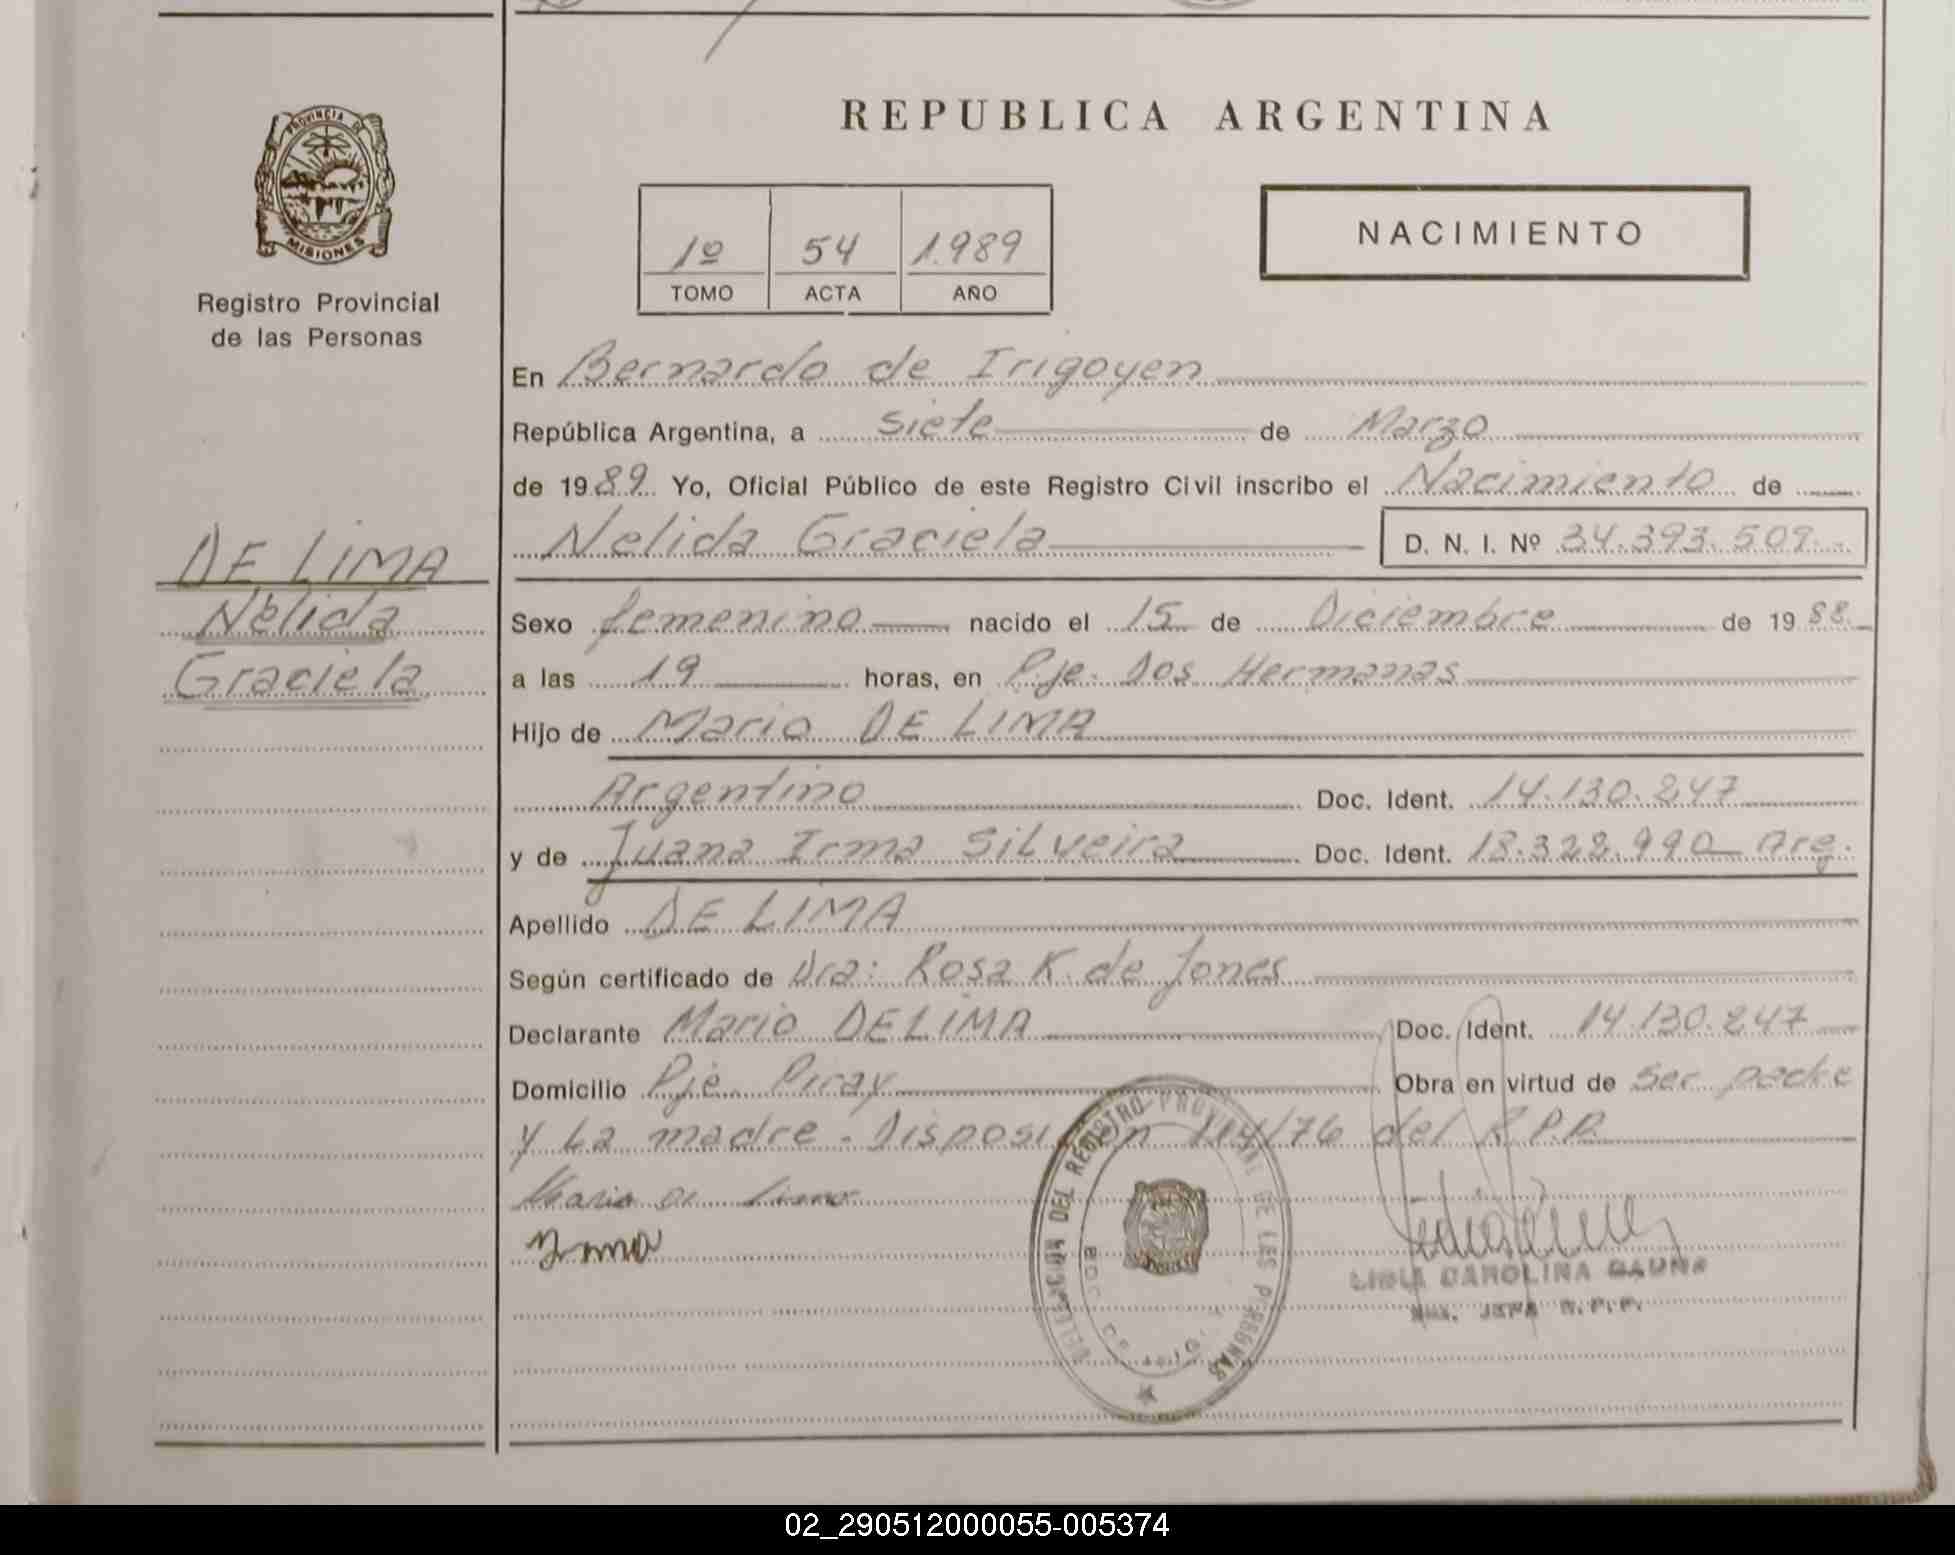 REPUBLICA ARGENTINA
PROVINCIA DE
MISIONES
Registro Provincial
de las Personas
1º 54 1.989
TOMO ACTA AÑO
NACIMIENTO
En Bernardo de Irigoyen
República Argentina, a siete de Marzo
de 1989. Yo, Oficial Público de este Registro Civil inscribo el Nacimiento de
Nelida Graciela D. N. I. Nº 34.393.509.-
DE LIMA
Nelida
Graciela
Sexo femenino nacido el 15 de Diciembre de 1988.
a las 19 horas, en Pje. Dos Hermanas
Hijo de Mario DE LIMA
Argentino Doc. Ident. 14.130.247
y de Juana Irma Silveira Doc. Ident. 18.328.990 Arg.
Apellido DE LIMA
Según certificado de Dra: Rosa K. de Jones
Declarante Mario DE LIMA Doc. Ident. 14.130.247
Domicilio Pje. Piray Obra en virtud de ser padre
y La madre. Disposición 114/76 del R.P.P.
Mario de Lima
Irma
DELEGACION DEL REGISTRO PROVINCIAL DE LAS PERSONAS
CAROLINA GAUNA
JEFA R.P.P.
02_290512000055-005374